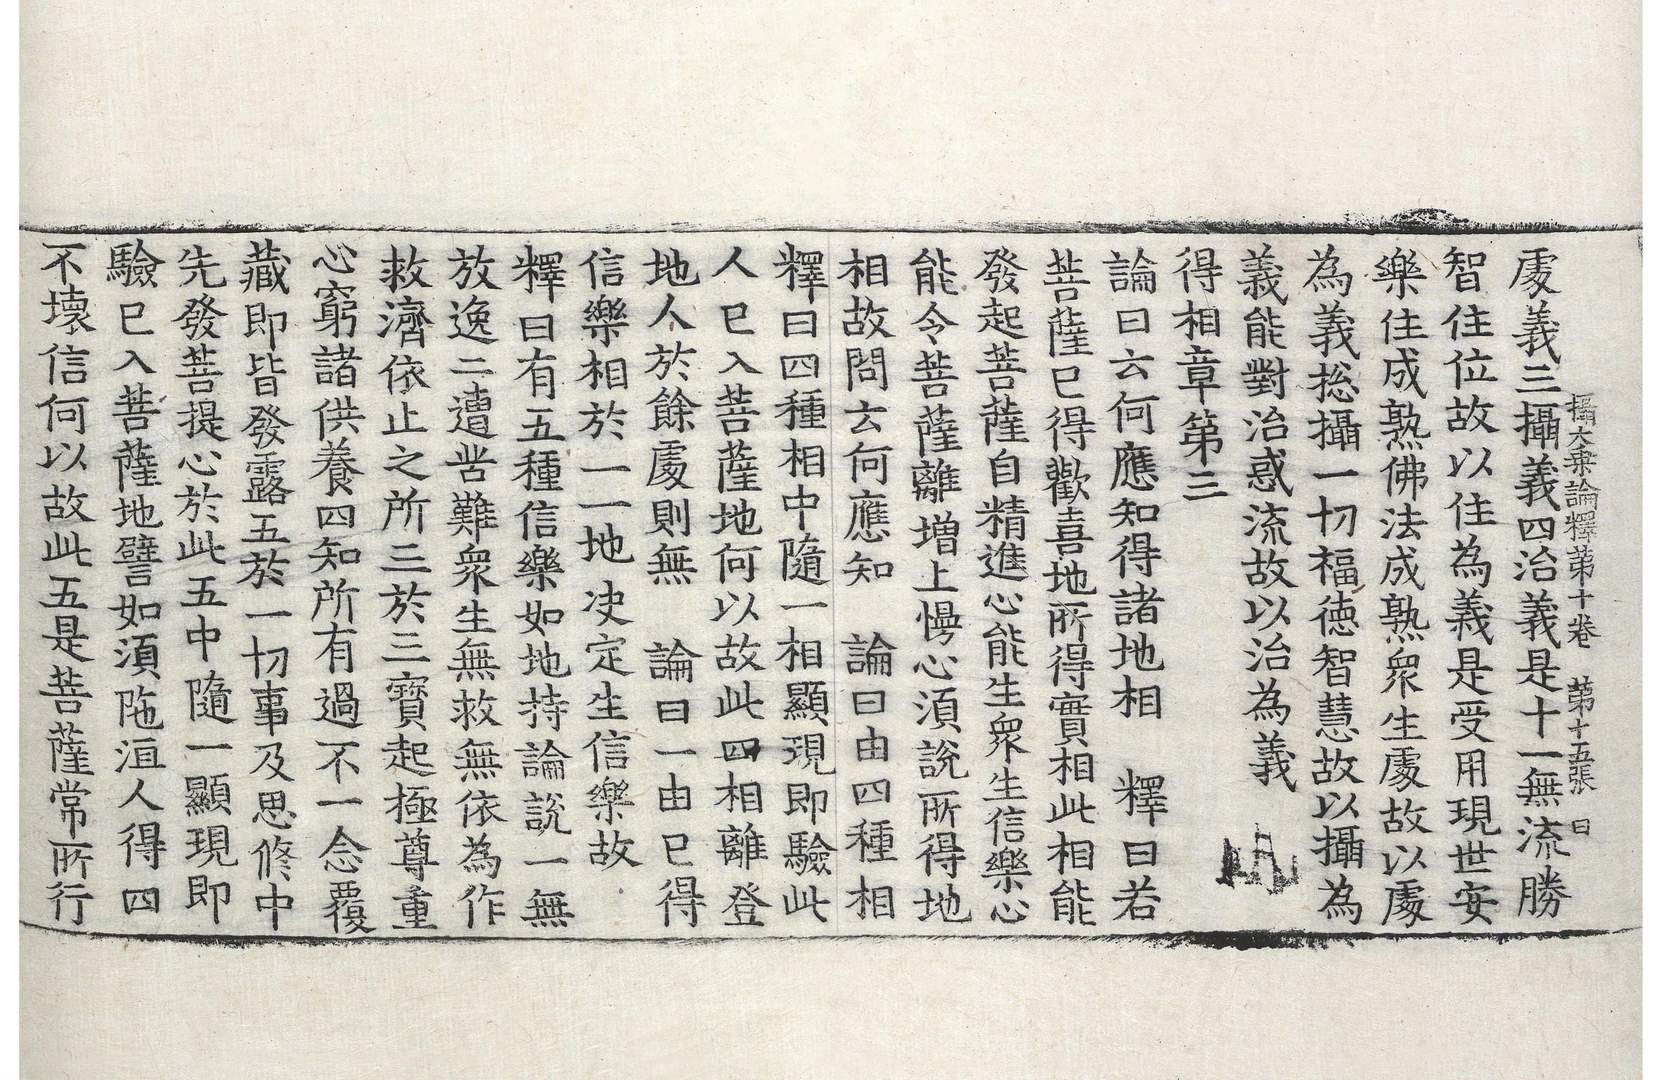 攝大乗論釋第十卷 第十五張 曰
處義三攝義四治義是十一無流勝
智住位故以住為義是受用現世安
樂住成熟佛法成熟衆生處故以處
為義捴攝一切福徳智慧故以攝為
義能對治惑流故以治為義
得相章第三
論曰云何應知得諸地相 釋曰若
菩薩已得歡喜地所得實相此相能
發起菩薩自精進心能生衆生信樂心
能令菩薩離増上慢心湏說所得地
相故問云何應知 論曰由四種相
釋曰四種相中隨一相顯現即驗此
人已入菩薩地何以故此四相離登
地人於餘處則無 論曰一由已得
信樂相於一一地决定生信樂故
釋曰有五種信樂如地持論說一無
放逸二遭苦難衆生無救無依為作
救濟依止之所三於三寶起極尊重
心窮諸供養四知所有過不一念覆
藏即皆發露五於一切事及思修中
先發菩提心於此五中隨一顯現即
驗已入菩薩地譬如湏陁洹人得四
不壞信何以故此五是菩薩常所行